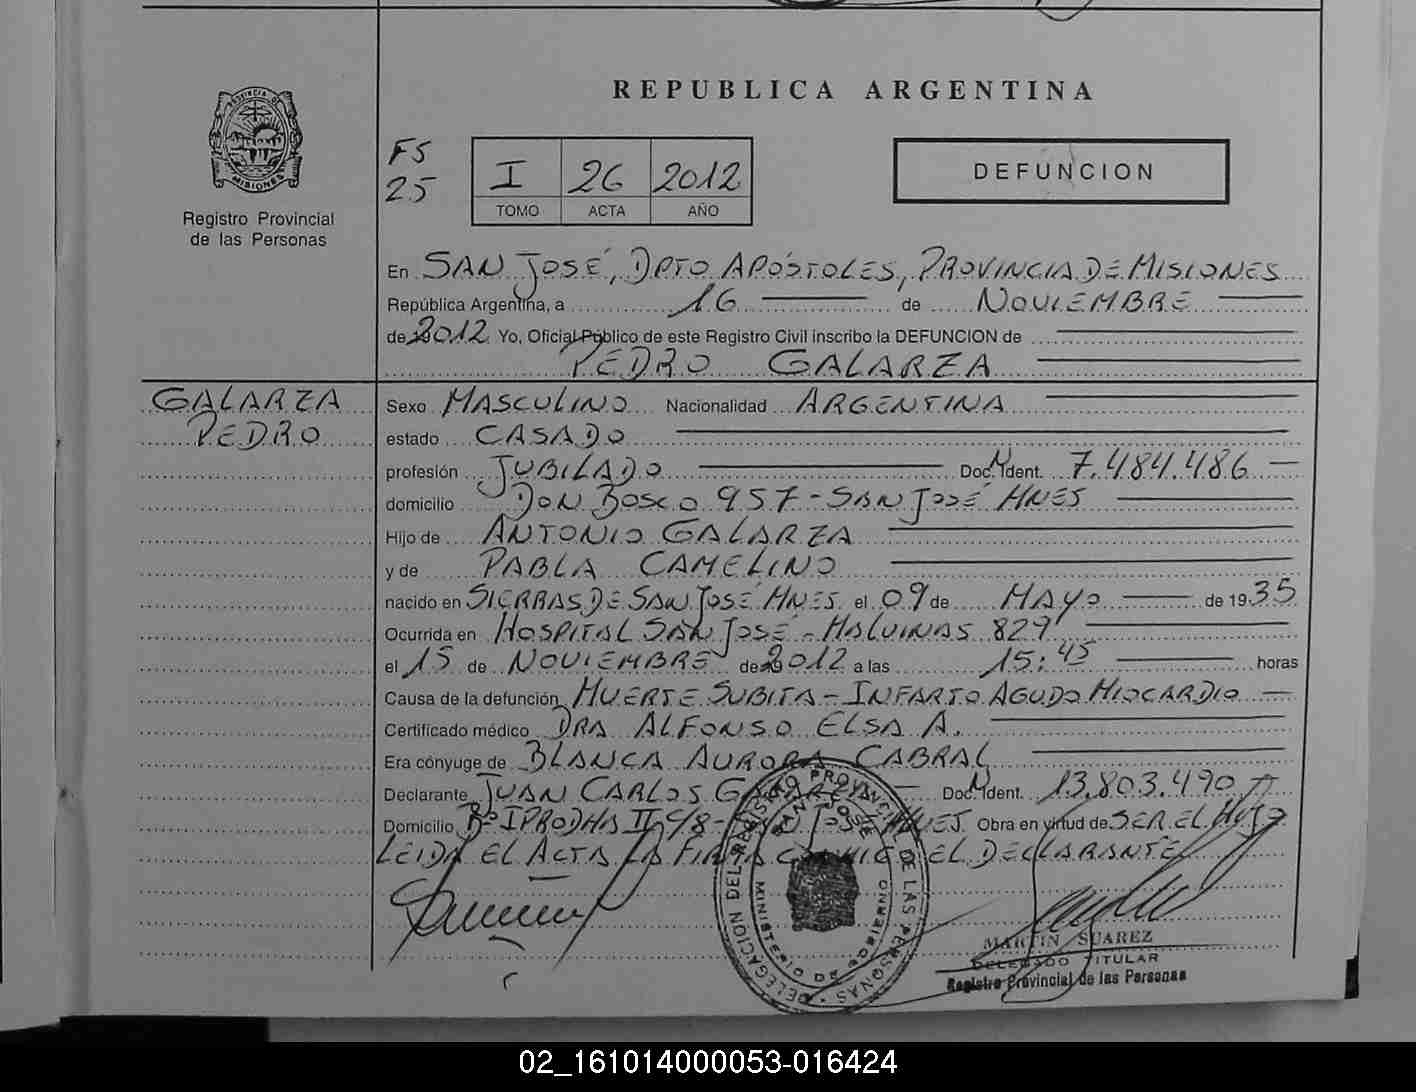 REPUBLICA ARGENTINA
PROVINCIA DE
MISIONES
Registro Provincial
de las Personas
FS
25
I 26 2012
TOMO ACTA AÑO
DEFUNCION
En SAN JOSÉ, DPTO APÓSTOLES, PROVINCIA DE MISIONES
República Argentina, a 16 de NOVIEMBRE
de 2012 Yo, Oficial Público de este Registro Civil inscribo la DEFUNCION de
PEDRO GALARZA
GALARZA
PEDRO
Sexo MASCULINO Nacionalidad ARGENTINA
estado CASADO
profesión JUBILADO Doc. Ident. 7.484.486
domicilio DON BOSCO 957 - SAN JOSÉ MNES
Hijo de ANTONIO GALARZA
y de PABLA CAMELINO
nacido en SIERRAS DE SAN JOSÉ MNES el 09 de MAYO de 1935
Ocurrida en HOSPITAL SAN JOSÉ - MALVINAS 829
el 15 de NOVIEMBRE de 2012 a las 15:45 horas
Causa de la defunción MUERTE SUBITA - INFARTO AGUDO MIOCARDIO
Certificado médico DRA ALFONSO ELSA A.
Era cónyuge de BLANCA AURORA CABRAL
Declarante JUAN CARLOS GALARZA Doc. Ident. 13.803.490
Domicilio Bº IPRODHA II C/8 - SAN JOSÉ MNES Obra en virtud de SER EL HIJO
LEIDA EL ACTA LA FIRMA CONMIGO EL DECLARANTE
DELEGACION DEL REGISTRO PROVINCIAL DE LAS PERSONAS
SAN JOSE
MINISTERIO DE GOBIERNO
MARTIN SUAREZ
DELEGADO TITULAR
Registro Provincial de las Personas
02_161014000053-016424